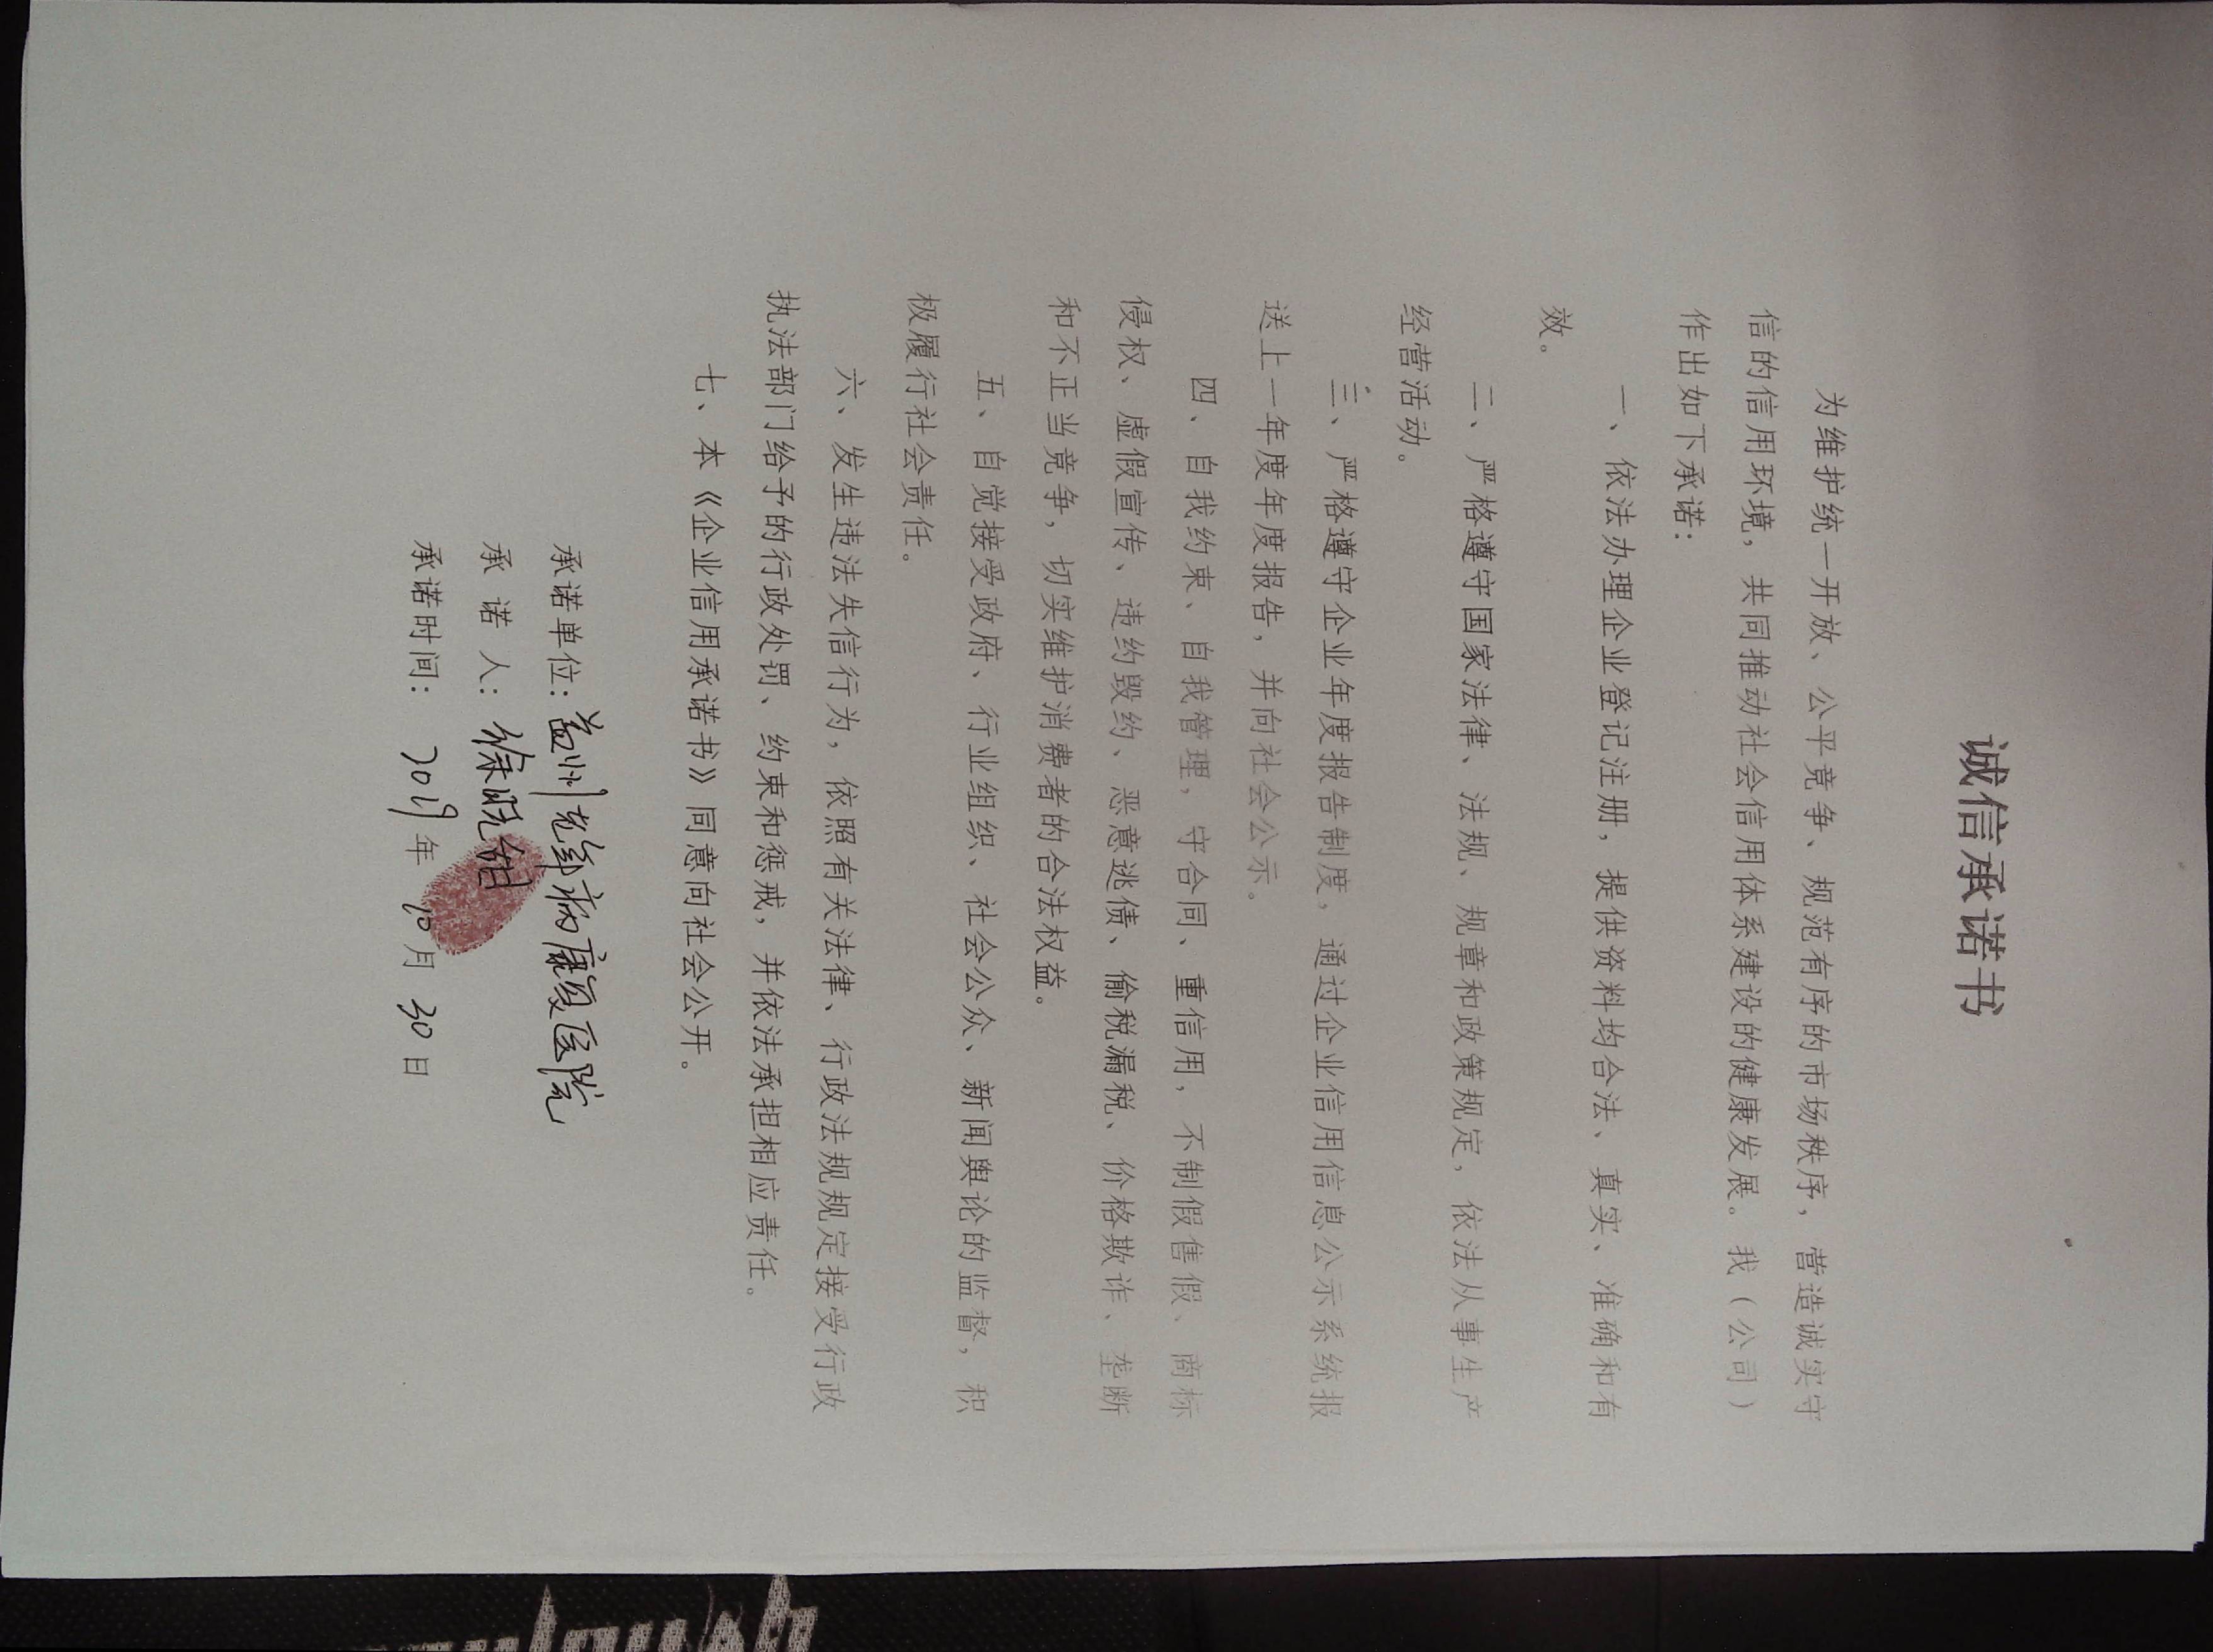 诚信承诺书
为维护统一开放、公平竞争、规范有序的市场秩序，营造诚实守
信的信用环境，共同推动社会信用体系建设的健康发展。我（公司）
作出如下承诺：
一、依法办理企业登记注册，提供资料均合法、真实、准确和有
效。
二、严格遵守国家法律、法规、规章和政策规定，依法从事生产
经营活动。
三、严格遵守企业年度报告制度，通过企业信用信息公示系统报
送上一年度年度报告，并向社会公示。
四、自我约束、自我管理，守合同、重信用，不制假售假、商标
侵权、虚假宣传、违约毁约、恶意逃债、偷税漏税、价格欺诈、垄断
和不正当竞争，切实维护消费者的合法权益。
五、自觉接受政府、行业组织、社会公众、新闻舆论的监督，积
极履行社会责任。
六、发生违法失信行为，依照有关法律、行政法规规定接受行政
执法部门给予的行政处罚、约束和惩戒，并依法承担相应责任。
七、本《企业信用承诺书》同意向社会公开。
承诺单位：盖州老年病康复医院
承 诺 人：徐
承诺时间：2019年 10月 30日